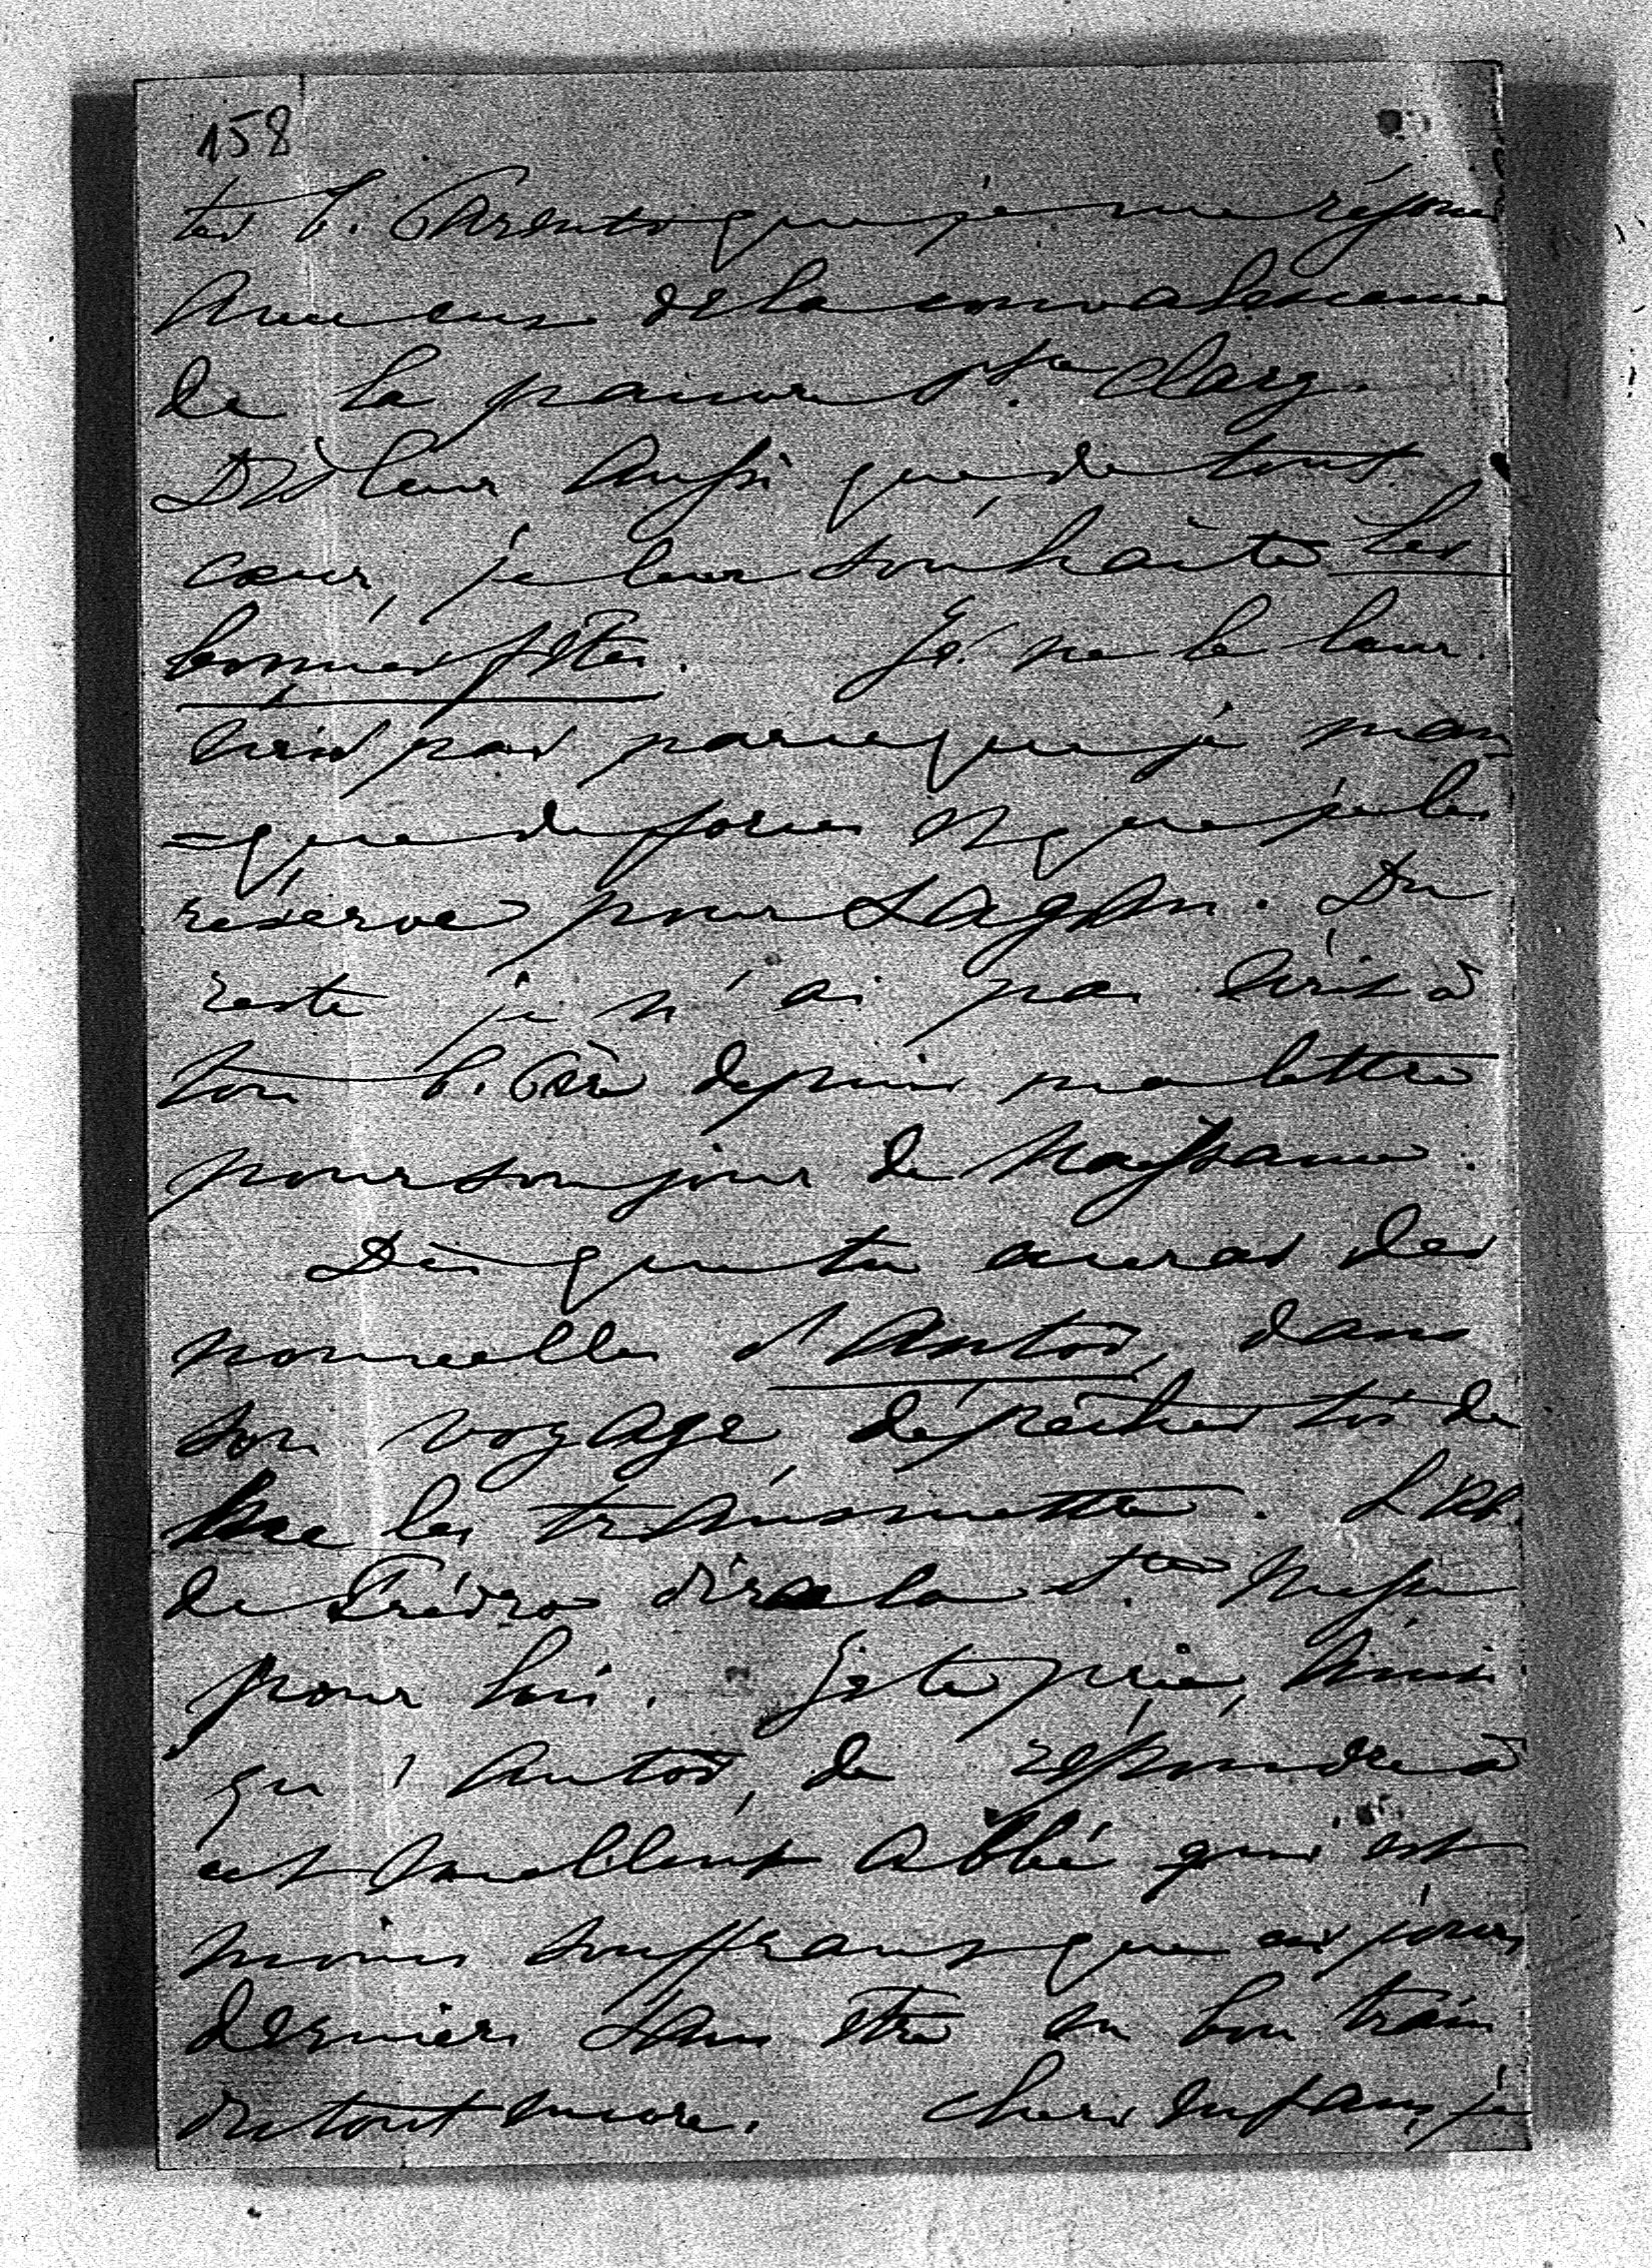 158
tes b. Parents que je me réjouis
avec eux de la convalescence
de la pauvre Ste Clary.
Dis leur aussi que de tout
cœur, je leur souhaite les
bonnes fêtes. Je ne le leur
écris pas parceque je man
=que de forces et que je les
réserve pour Gaston. Du
reste je n'ai pas écrit à
ton b. Père depuis ma lettre
pour son jour de Naissance.
Dès que tu auras des
nouvelles d'Antos, dans
son voyage, dépêches toi de
me les transmettre. L'Ab.
de dira la Ste Messe
pour lui. Je te prie, ainsi
qu'Antos, de répondre à
cet excellent Abbé qui est
moins souffrant que ces jours
derniers sans être en bon train
du tout encore. Chers enfans, je